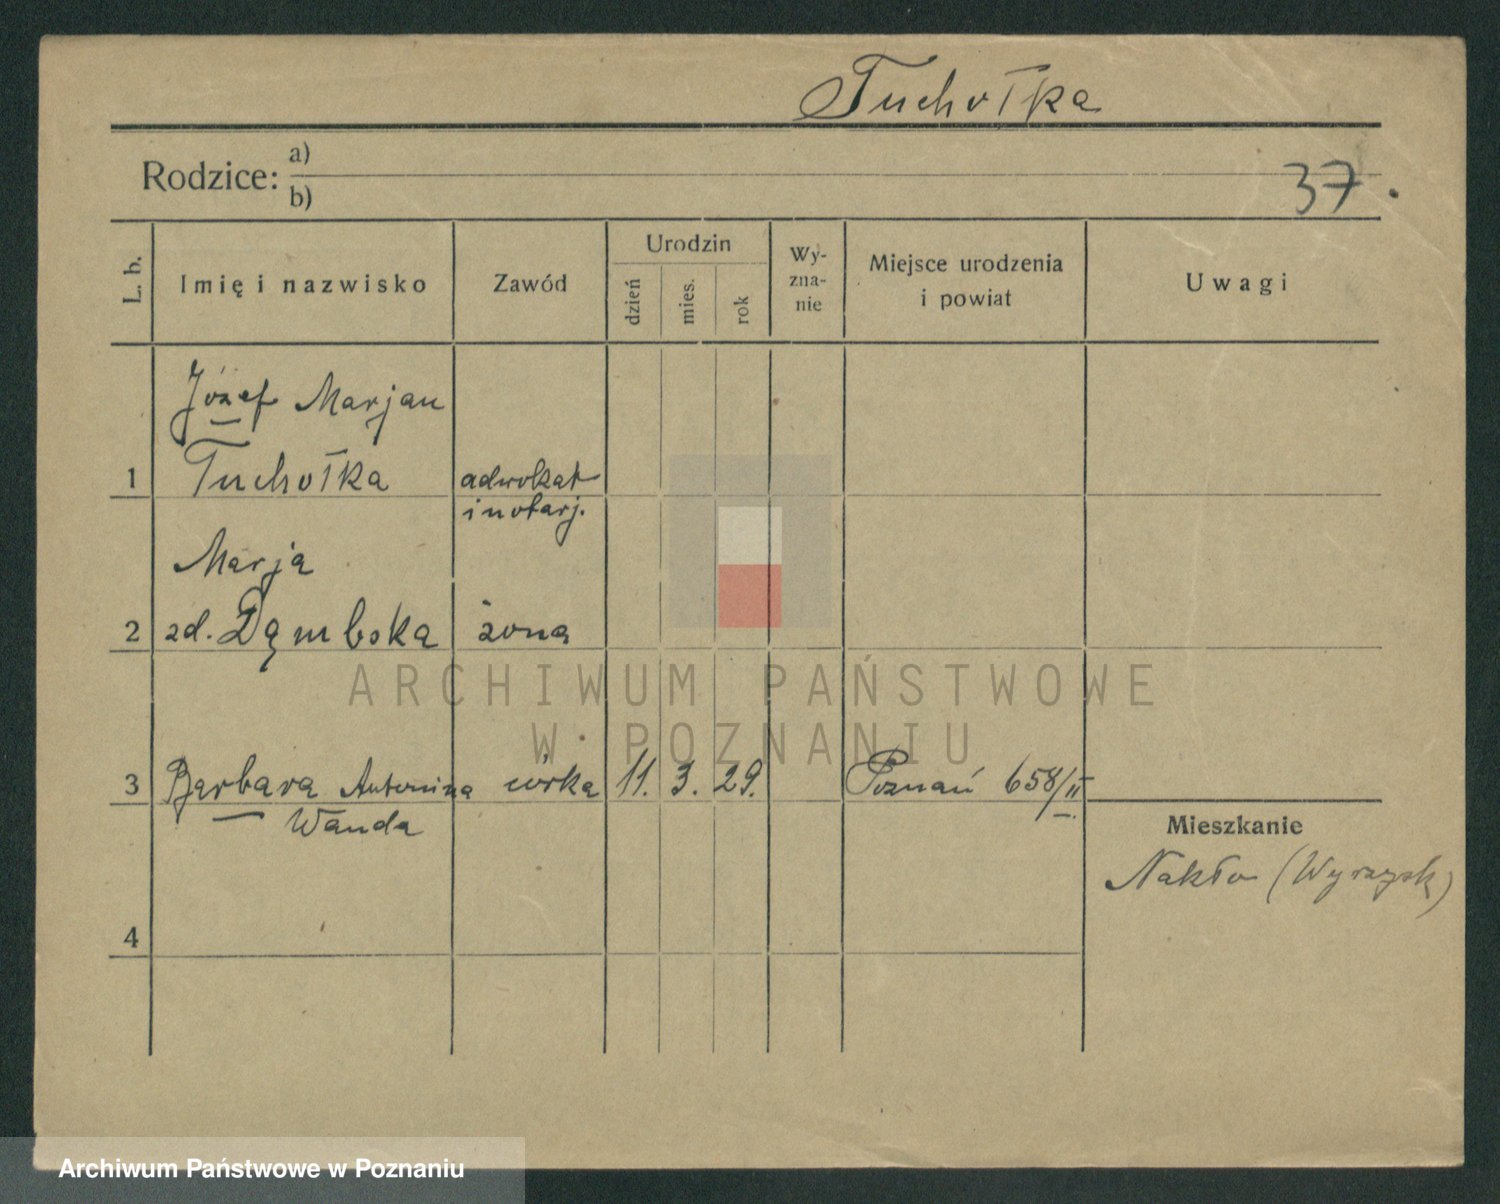 Tuchołka
Rodzice: a)
b)
37.
L. b.
Imię i nazwisko
Zawód
Urodzin
dzień
mies.
rok
Wy-
zna-
nie
Miejsce urodzenia
i powiat
Uwagi
Józef Marjan
1 Tuchołka adwokat
i notarj.
Marja
2 zd. Dąmbska żona
3 Barbara Antonina córka 11. 3. 29. Poznań 658/II
Wanda
Mieszkanie
Nakło (Wyrzysk)
4
ARCHIWUM PAŃSTWOWE
W POZNANIU
Archiwum Państwowe w Poznaniu